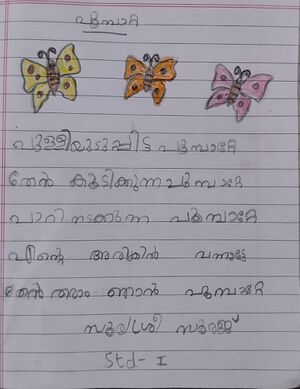 പൂമ്പാറ്റ
പുള്ളിയുടുപ്പിട്ട പൂമ്പാറ്റേ
തേൻ കുടിക്കുന്ന പൂമ്പാറ്റേ
പാറി നടക്കുന്ന പൂമ്പാറ്റേ
എൻ്റെ അരികിൽ വന്നാട്ടേ
തേൻ തരാം ഞാൻ പൂമ്പാറ്റേ
സൂരജ്
Std- I